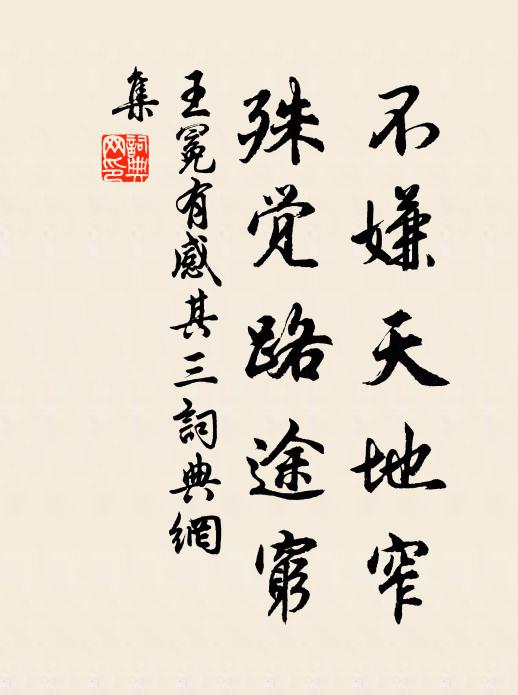 不嫌天地窄
殊觉路途窮
王冕有感其三詞典網
集
詞典
网印